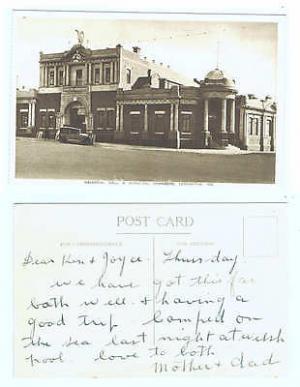 MEMORIAL HALL & MUNICIPAL CHAMBERS,
POST CARD
FOR CORRESPONDENCE
FOR ADDRESS
Dear Ken & Joyce. Thursday
we have got this far
both well. & having a
good trip camped on
the sea last night at welsh
pool. love to both
Mother & dad